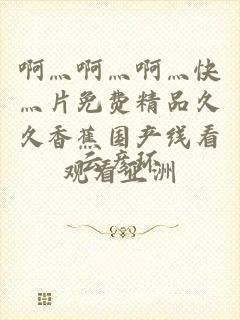 啊灬啊灬啊灬快
灬片免费精品久
久香蕉国产线看
观看亚洲